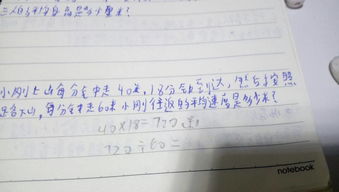 三人的平均身高是多少厘米?
小刚上山每分钟走40米,18分钟到达,然后按照
原路下山,每分钟走60米小刚往返的平均速度是多少米?
40×18=720米
720÷60=
notebook